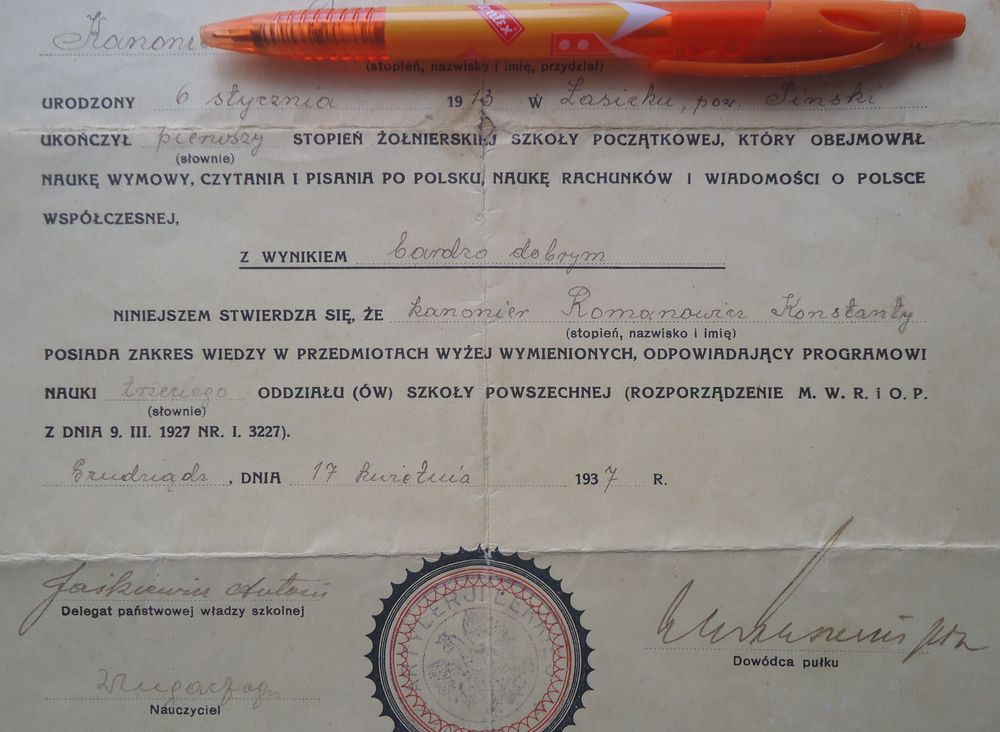 Kanonier
(stopień, nazwisko i imię, przydział)
URODZONY 6 stycznia 1913 W Łasicku, pow. Piński
UKOŃCZYŁ pierwszy STOPIEŃ ŻOŁNIERSKIEJ SZKOŁY POCZĄTKOWEJ, KTÓRY OBEJMOWAŁ
(słownie)
NAUKĘ WYMOWY, CZYTANIA I PISANIA PO POLSKU, NAUKĘ RACHUNKÓW I WIADOMOŚCI O POLSCE
WSPÓŁCZESNEJ,
Z WYNIKIEM bardzo dobrym
NINIEJSZEM STWIERDZA SIĘ, ŻE kanonier Romanowicz Konstanty
(stopień, nazwisko i imię)
POSIADA ZAKRES WIEDZY W PRZEDMIOTACH WYŻEJ WYMIENIONYCH, ODPOWIADAJĄCY PROGRAMOWI
NAUKI trzeciego ODDZIAŁU (ÓW) SZKOŁY POWSZECHNEJ (ROZPORZĄDZENIE M. W. R. i O. P.
(słownie)
Z DNIA 9. III. 1927 NR. I. 3227).
Grudziądz, DNIA 17 kwietnia 1937 R.
Jaśkiewicz Antoni
Delegat państwowej władzy szkolnej
Dowódca pułku
Nauczyciel
ARTYLERJI LEKKIEJ